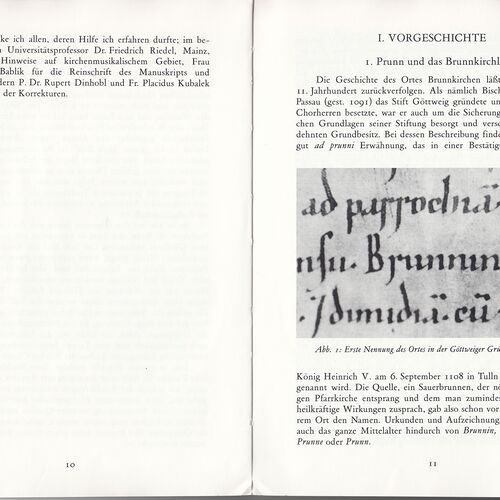 ke ich allen, deren Hilfe ich erfahren durfte; im be-
Universitätsprofessor Dr. Friedrich Riedel, Mainz,
Hinweise auf kirchenmusikalischem Gebiet, Frau
Bablik für die Reinschrift des Manuskripts und
dern P. Dr. Rupert Dinhobl und Fr. Placidus Kubalek
der Korrekturen.
10
I. VORGESCHICHTE
1. Prunn und das Brunnkirchl
Die Geschichte des Ortes Brunnkirchen läßt
11. Jahrhundert zurückverfolgen. Als nämlich Bisch
Passau (gest. 1091) das Stift Göttweig gründete un
Chorherren besetzte, war er auch um die Sicherung
chen Grundlagen seiner Stiftung besorgt und vers
dehnten Grundbesitz. Bei dessen Beschreibung finde
gut ad prunni Erwähnung, das in einer Bestätig
ad parrochiā
nsu. Brunnin
dimidiā. cū
Abb. 1: Erste Nennung des Ortes in der Göttweiger Grü
König Heinrich V. am 6. September 1108 in Tulln
genannt wird. Die Quelle, ein Sauerbrunnen, der nö
gen Pfarrkirche entsprang und dem man zumindes
heilkräftige Wirkungen zusprach, gab also schon vor
rem Ort den Namen. Urkunden und Aufzeichnung
auch das ganze Mittelalter hindurch von Brunnin,
Prunne oder Prunn.
11